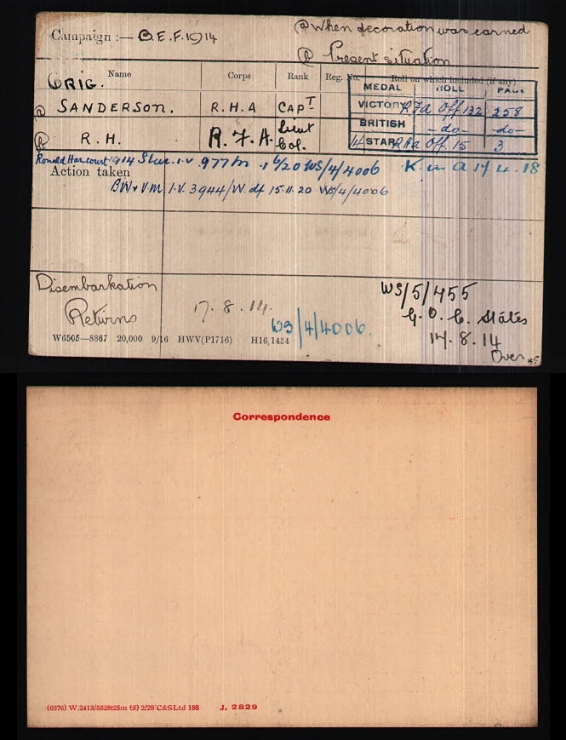 Campaign :— B.E.F. 1914
@ When decoration was earned
@ Present situation
ORIG. Name Corps Rank Reg. No. Roll on which included (if any)
MEDAL ROLL PAGE
@ SANDERSON. R.H.A CAPT
VICTORY RFA Off 132 258
BRITISH -do- -do-
@ R. H. R.F.A. Lieut Col.
14 STAR RFA Off. 15 3
Ronald Harcourt 914 Star. I.V. 977 16/20 WS/4/4006 K. in A 17/4.18
Action taken
BW & VM I.V. 3944/W. df 15.11.20 WS/4/4006
Disembarkation
Returns 17.8.14.
WS/4/4006.
WS/5/455
G.O.C. States
17.8.14
Over
W6505—8867 20,000 9/16 HWV(P1716) H16,1434
Correspondence
(6976) W.2413/5528 25m (5) 2/29 C&S Ltd 186 J. 2829